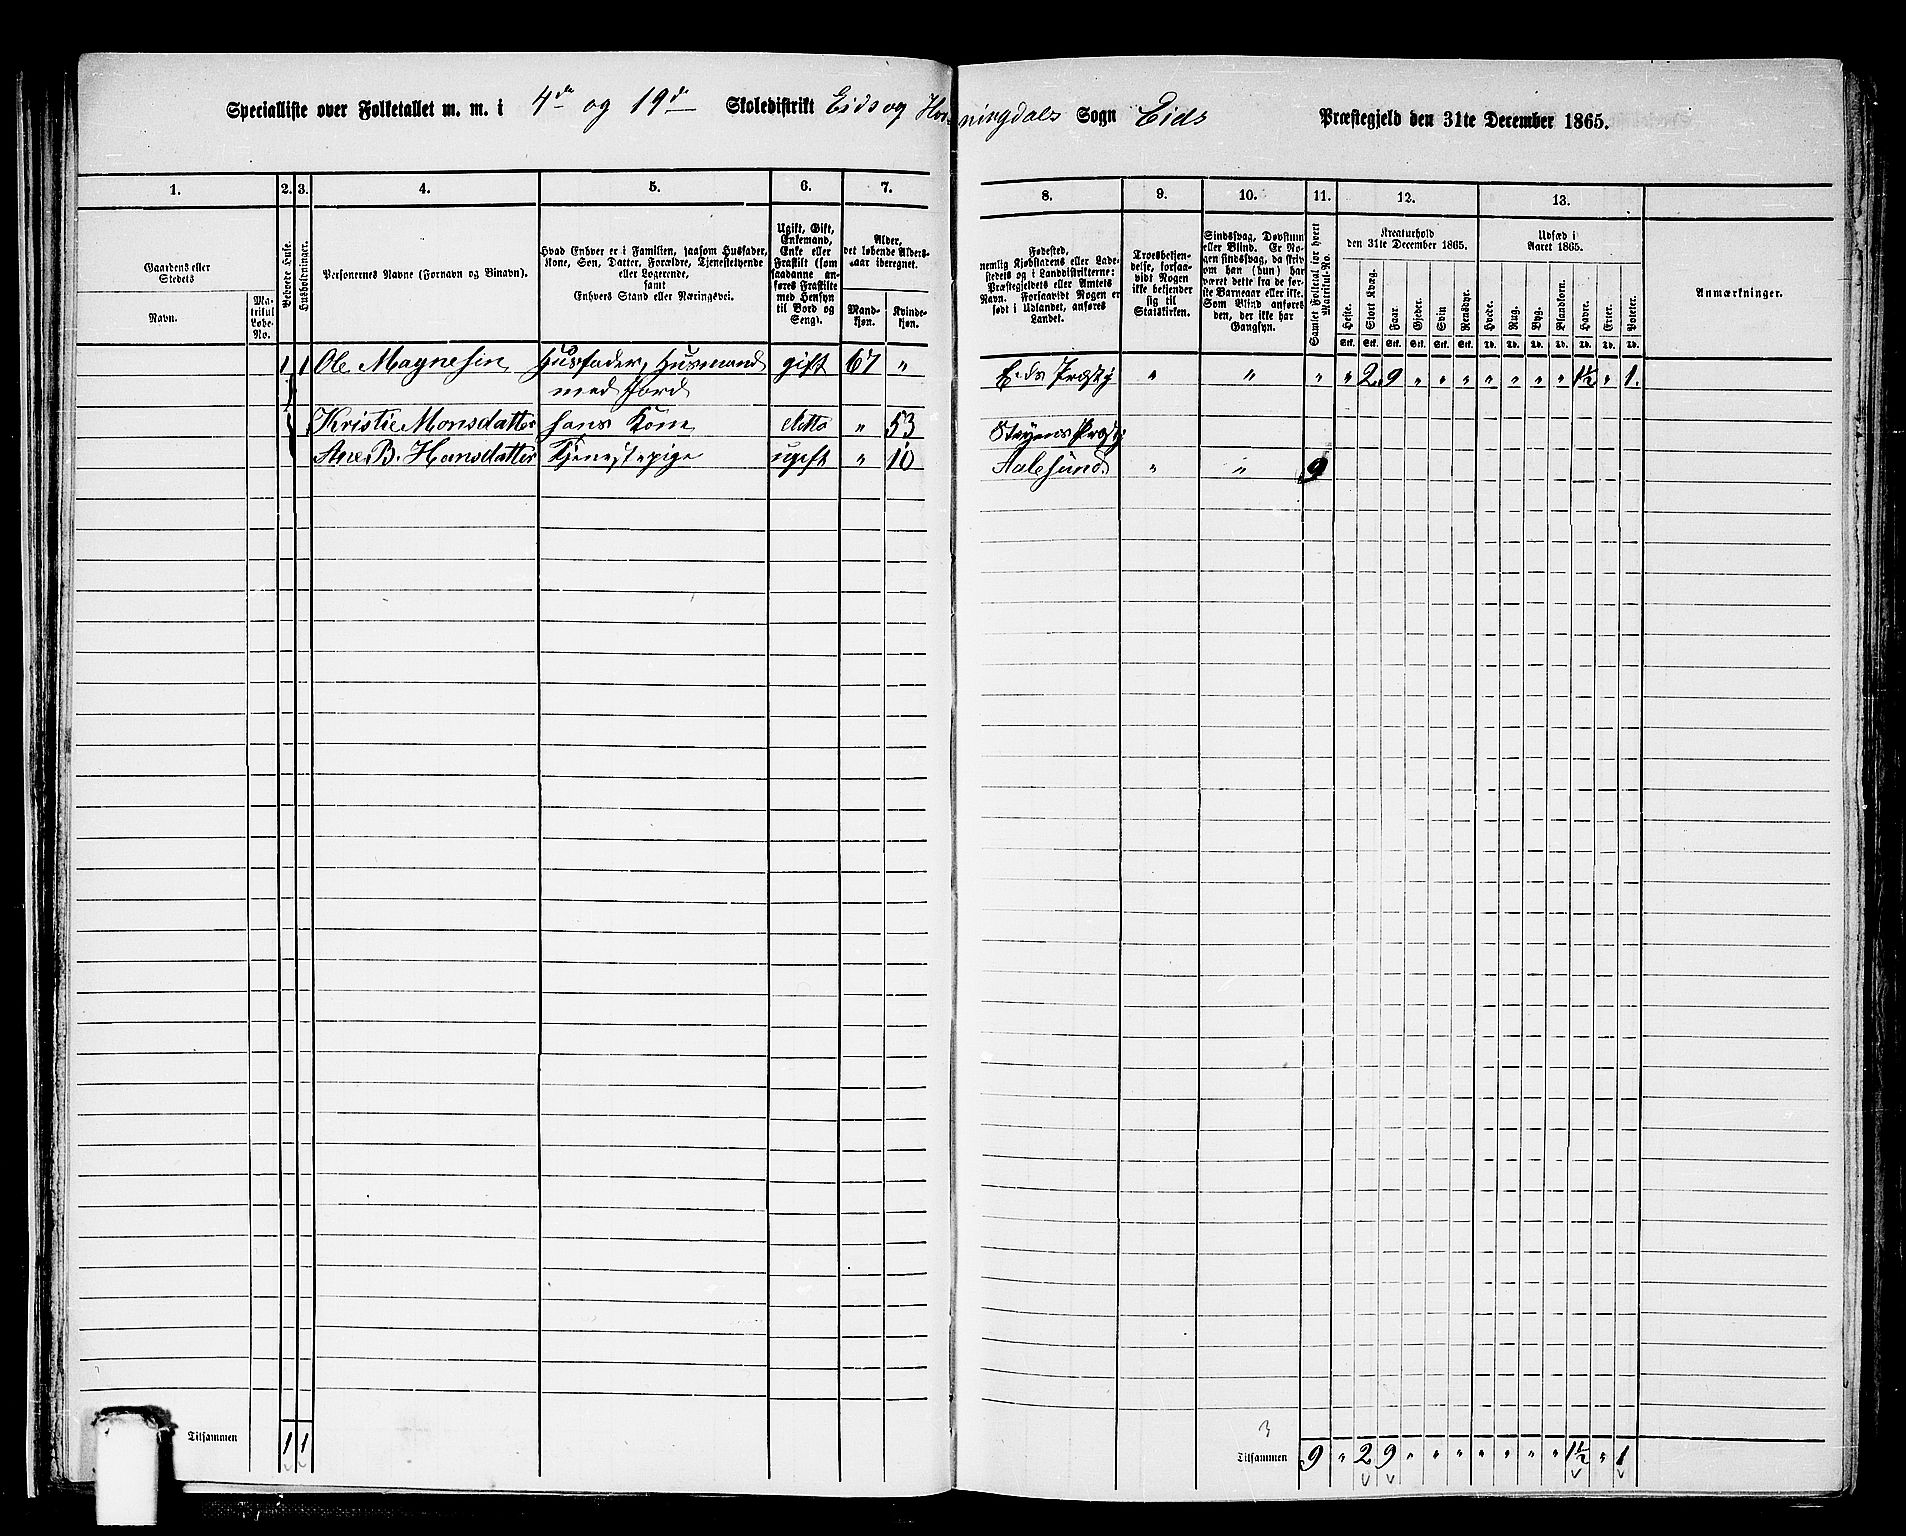 Specialliste over Folketallet m. m. i 4de og 19de Skoledistrikt Eids og Horningdals Sogn Eids Præstegjeld den 31te December 1865.
1. 2. 3. 4. 5. 6. 7. 8. 9. 10. 11. 12. 13.
Gaardens eller Stedets
Navn.
Matrikul Løbe-No.
Beboede Huse.
Husholdninger.
Personernes Navne (Fornavn og Binavn).
Hvad Enhver er i Familien, saasom Husfader,
Kone, Søn, Datter, Forældre, Tjenestetyende
eller Logerende,
samt
Enhvers Stand eller Næringsvei.
Ugift, Gift,
Enkemand,
Enke eller
Fraskilt (som
saadanne an-
føres Fraskilte
med Hensyn
til Bord og
Seng).
Alder,
det løbende Alders-
aar iberegnet.
Mand-
kjøn.
Kvinde-
kjøn.
Fødested,
nemlig Kjøbstadens eller Lade-
stedets og i Landdistrikterne:
Præstegjeldets eller Amtets
Navn. Forsaavidt Nogen er
født i Udlandet, anføres
Landet.
Troesbekjen-
delse, forsaa-
vidt Nogen
ikke bekjender
sig til
Statskirken.
Sindssvag, Døvstum
eller Blind. Er No-
gen sindssvag, da skriv
om han (hun) har
været dette fra de før-
ste Barneaar eller ikke.
Som Blind anføres
den, der ikke har
Gangsyn.
Samlet Folketal for hvert
Matrikul-No.
Kreaturhold
den 31te December 1865.
Heste. Stort Kvæg. Faar. Gjeder. Sviin. Rensdyr.
Stk. Stk. Stk. Stk. Stk. Stk.
Udsæd i
Aaret 1865.
Hvede. Rug. Byg. Blandkorn. Havre. Erter. Poteter.
Td. Td. Td. Td. Td. Td. Td.
Anmærkninger.
1 1 Ole Magnesin Husfader, Husmand gift 67 " Eids Præstgj " " " " 2 9 " " " " " " " 1½ " 1.
med jord
Kristie Monsdatter hans Kone ditto " 53 Præstgj
Ane B. Hansdatter Tjenestepige ugift " 10 Aalesund " " 9
3
Tilsammen 1 1 Tilsammen 9 " 2 9 " " " " " " " 1½ " 1